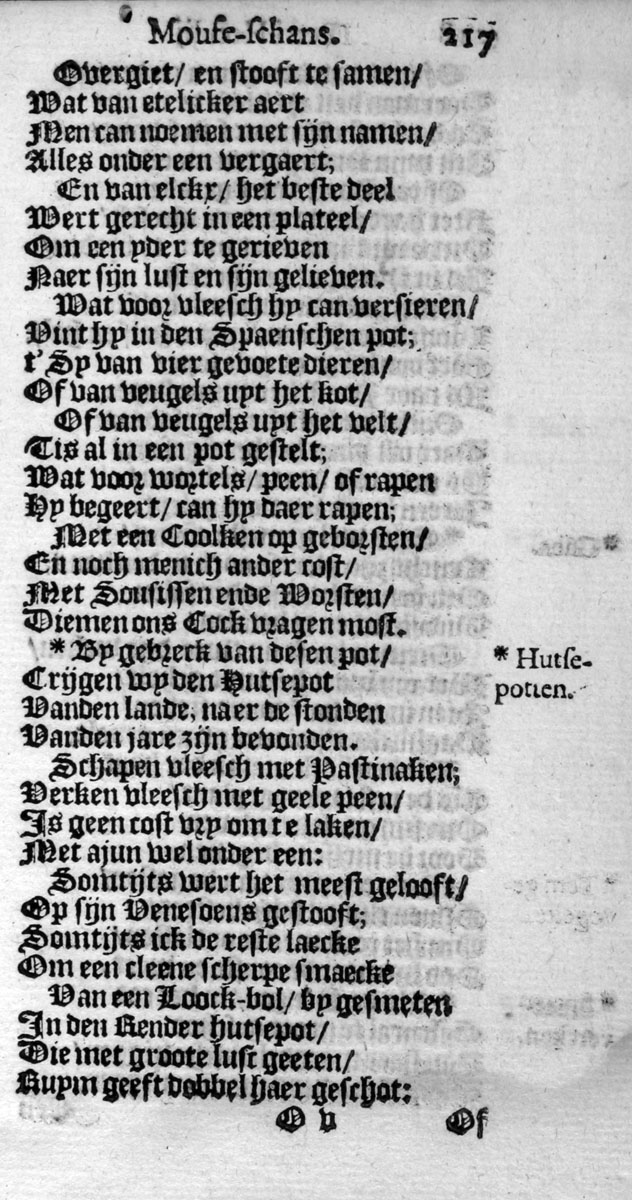 Mouse-schans. 217
Overgiet/ en stooft te samen/
Wat van etelicker aert
Men can noemen met sijn namen/
Alles onder een vergaert;
En van elckx/ het beste deel
Wert gerecht in een plateel/
Om een yder te gerieven
Naer sijn lust en sijn gelieven.
Wat voor vleesch hy can versieren/
Vint hy in den Spaenschen pot;
t'Sy van vier gevoete dieren/
Of van veugels uyt het kot/
Of van veugels uyt het velt/
Tis al in een pot gestelt;
Wat voor wortels/ peen/ of rapen
Hy begeert/ can hy daer rapen;
Met een Coolken op geborsten/
En noch menich ander cost/
Met Sousissen ende Worsten/
Diemen ons Cock vragen most.
* By gebreck van desen pot/
Crijgen wy den Hutsepot
Vanden lande, naer de stonden
Vanden jare zijn bevonden.
* Hutse-
potten.
Schapen vleesch met Pastinaken;
Verken vleesch met geele peen/
Is geen cost vry om te laken/
Met ajun wel onder een:
Somtijts wert het meest gelooft/
Op sijn Venesoens gestooft;
Somtijts ick de reste laecke
Om een cleene scherpe smaecke
Van een Loock-bol/ by gesmeten
In den Render hutsepot/
Die met groote lust geeten/
Ruym geeft dobbel haer geschot:
O v Of